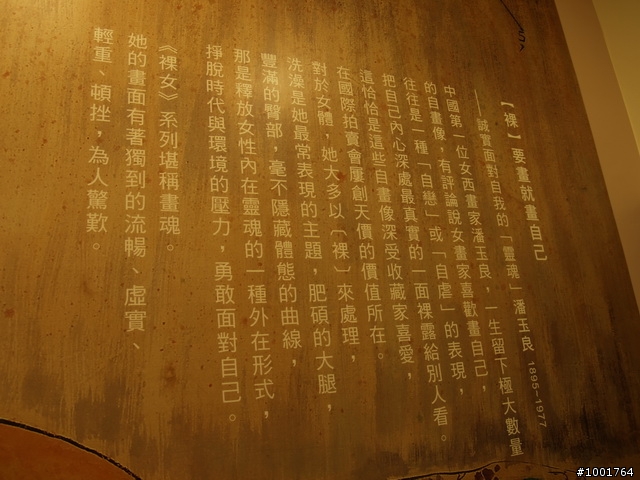 【裸】要畫就畫自己
——誠實面對自我的「靈魂」潘玉良 1895~1977
中國第一位女西畫家潘玉良，一生留下極大數量
的自畫像，有評論說女畫家喜歡畫自己，
往往是一種「自戀」或「自虐」的表現，
把自己內心深處最真實的一面裸露給別人看。
這恰恰是這些自畫像深受收藏家喜愛，
在國際拍賣會屢創天價的價值所在。
對於女體，她大多以〔裸〕來處理，
洗澡是她最常表現的主題，肥碩的大腿，
豐滿的臀部，毫不隱藏體態的曲線，
那是釋放女性內在靈魂的一種外在形式，
掙脫時代與環境的壓力，勇敢面對自己。
《裸女》系列堪稱畫魂。
她的畫面有著獨到的流暢、虛實、
輕重、頓挫，為人驚歎。
#1001764